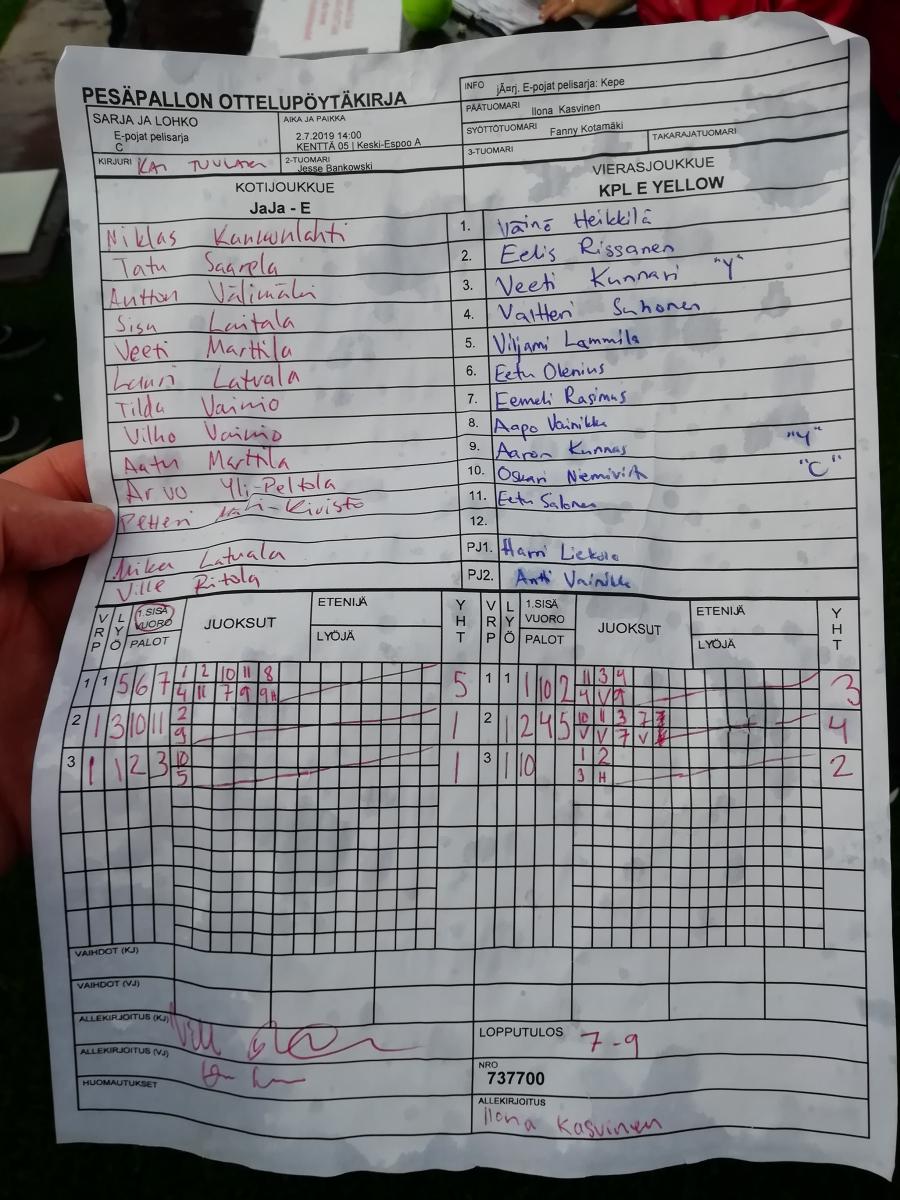 PESÄPALLON OTTELUPÖYTÄKIRJA
INFO jÃ¤rj. E-pojat pelisarja: Kepe
PÄÄTUOMARI Ilona Kasvinen
SYÖTTÖTUOMARI Fanny Kotamäki
3-TUOMARI TAKARAJATUOMARI
SARJA JA LOHKO
E-pojat pelisarja
C
AIKA JA PAIKKA
2.7.2019 14:00
KENTTÄ 05 | Keski-Espoo A
KIRJURI KAI
2-TUOMARI
Jesse Bankowski
KOTIJOUKKUE
JaJa - E
VIERASJOUKKUE
KPL E YELLOW
Niklas Kankunlahti 1. Väinö Heikkilä
Tatu Saarela 2. Eelis Rissanen
Antton Välimäki 3. Veeti Kunnari "Y"
Sisu Laitala 4. Valtteri Suhonen
Veeti Marttila 5. Viljami Lammila
Lauri Latvala 6. Eetu Olenius
Tilda Vainio 7. Eemeli Rasimus
Vilho Vainio 8. Aapo Vainikka
Aatu Marttila 9. Aaron Kunnas "Y"
Arvo Yli-Peltola 10. Oskari Niemivirta "C"
Petteri 11. Eetu Salonen
12.
Mika Latvala PJ1. Harri
Ville Ritola PJ2. Antti Vainikka
VRP LYÖ 1.SISÄ VUORO PALOT JUOKSUT ETENIJÄ LYÖJÄ YHT VRP LYÖ 1.SISÄ VUORO PALOT JUOKSUT ETENIJÄ LYÖJÄ YHT
1 1 5 6 7 1 2 10 11 8 5 1 1 1 10 2 11 3 4 3
4 11 7 9 9H 4 V 9
2 1 3 10 11 2 1 2 1 2 4 5 10 11 3 7 4
9 V V 7 V
3 1 1 2 3 10 1 3 1 10 1 2 2
5 3 H
VAIHDOT (KJ)
VAIHDOT (VJ)
ALLEKIRJOITUS (KJ)
ALLEKIRJOITUS (VJ)
HUOMAUTUKSET
LOPPUTULOS 7-9
NRO
737700
ALLEKIRJOITUS
Ilona Kasvinen